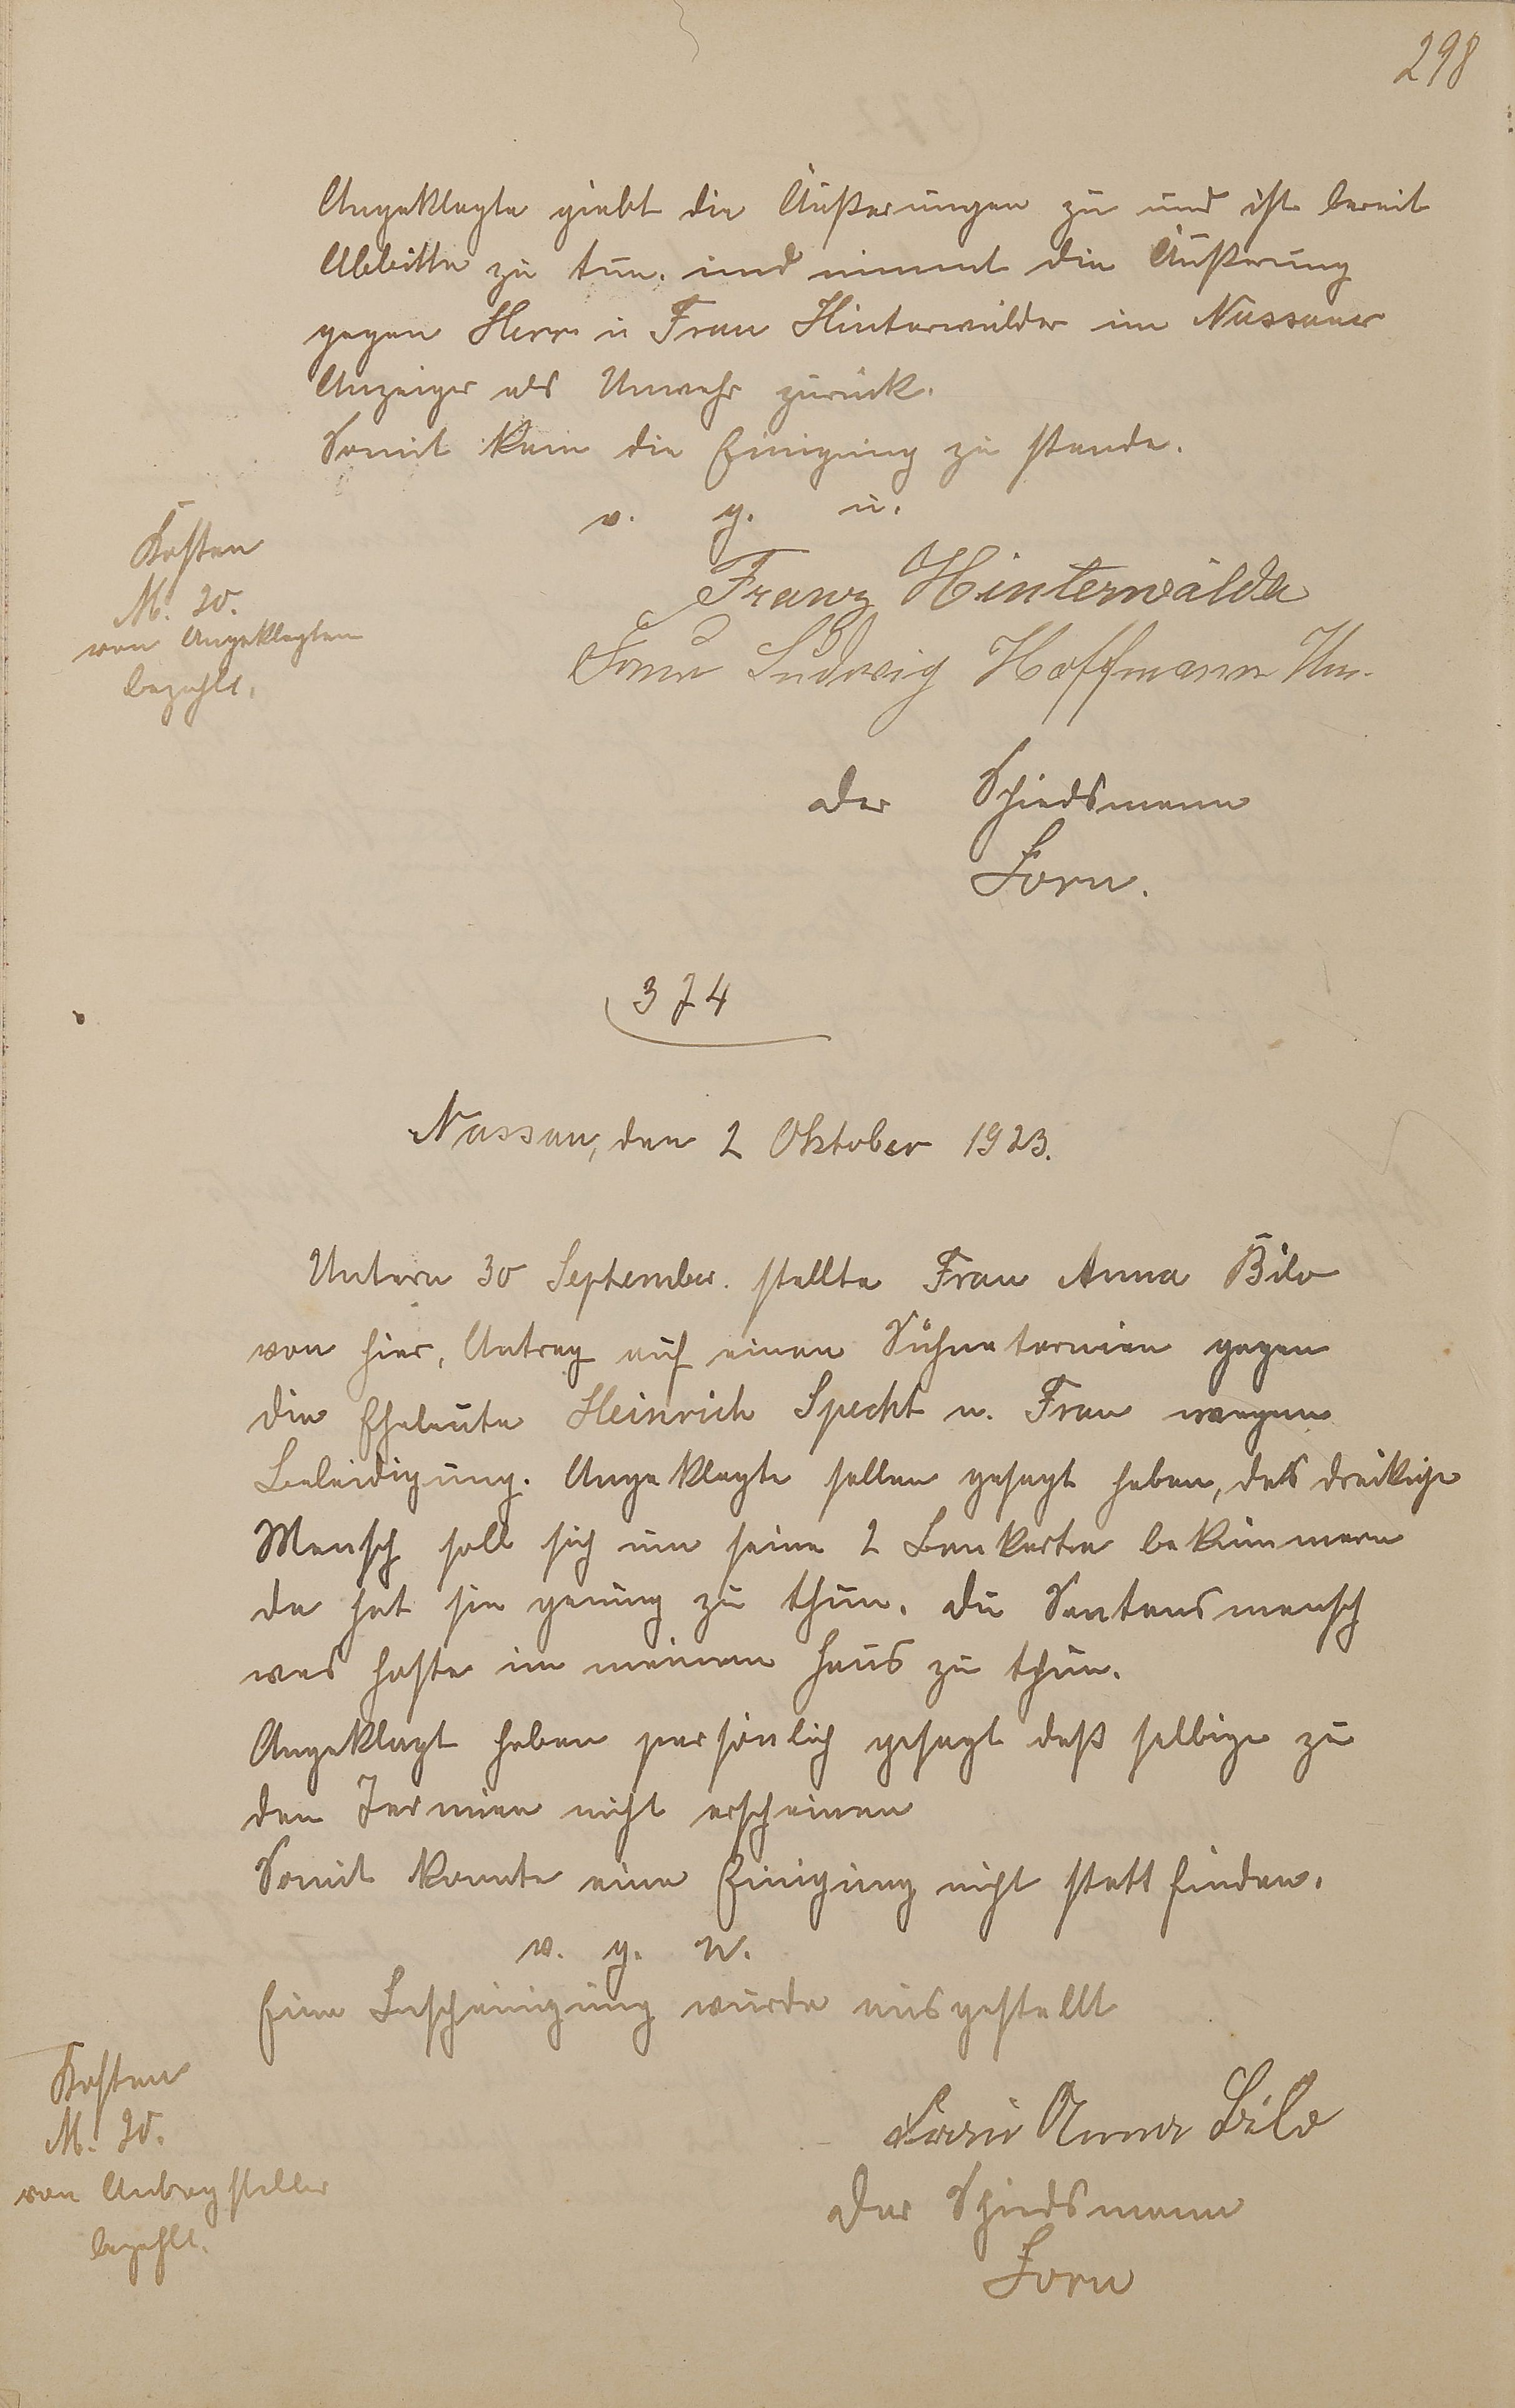 298
Angeklagte giebt die Äußerungen zu und ist bereit
Abbitte zu tun. und nimmt die Äußerung
gegen Herr u Frau Hinterwälder im Nassauer
Anzeiger als Unwahr zurück.
Somit kam die Einigung zu stande.
v. g. u.
Kosten
M. 20.
von Angeklagten
bezahlt.
Franz Hinterwälder
Frau Ludwig Hoffmann Ww.
der Schiedsmann
Form.
374
Nassau, den 2 Oktober 1923.
Untern 30 September. stellte Frau Anna Bilo
von hier, Antrag auf einen Sühnetermien gegen
die Eheleute Heinrich Specht u. Frau wegen
Beleidigung. Angeklagte sollen gesagt haben, das dreckige
Mensch soll sich um seine 2 Bankerte bekümmern
da hat sie genung zu thun. du
was haste in meinem Haus zu thun.
Angeklagt haben persönlich gesagt daß selbige zu
den Termien nicht erscheinen
Somit konnte eine Einigung nicht statt finden.
v. g. u.
Eine Bescheinigung wurde ausgestellt
Kosten
M. 20.
von Antragsteller
bezahlt.
Frau Anna Bilo
Der Schiedsmann
Form